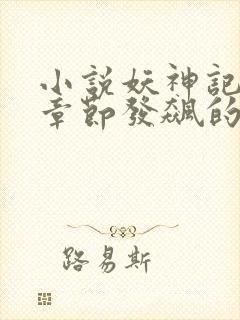 小說妖神記
章節發飆的
路易斯